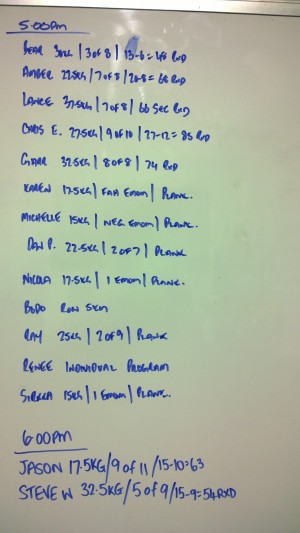 5:00PM
BEAR 30KG | 3 of 8 | 13-6= 48 RXD
AMBER 22.5KG | 7 of 8 | 20-8= 68 RXD
LANCE 37.5KG | 7 of 8 | 66 SEC RXD
CHRIS E. 27.5KG | 9 of 10 | 27-12= 85 RXD
32.5KG | 8 of 8 | 74 RXD
KAREN 17.5KG | EMOM | PLANK.
MICHELLE 15KG | NEG EMOM | PLANK.
DAN P. 22.5KG | 2 of 7 | PLANK
NICOLA 17.5KG | 1 EMOM | PLANK.
BODO RUN 5KM
RAY 25KG | 2 of 9 | PLANK
RENEE INDIVIDUAL PROGRAM
15KG | 1 EMOM | PLANK.
6:00PM
JASON 17.5KG/9 of 11/15-10=63
STEVE W 32.5KG/5 of 9/15-9=54RXD